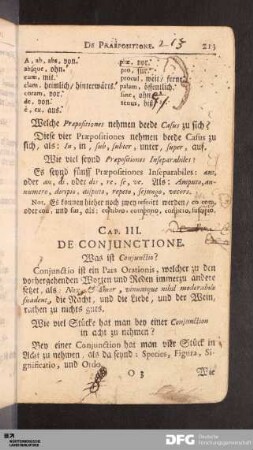 DE PRÆPOSITIONE. 213
213
A, ab, abs, von.
absque, ohn.
cum, mit.
clam, heimlich/ hinterwärts.
coram, vor.
de, von.
è, ex, aus.
præ, vor.
pro, für.
procul, weit/ fern.
palam, öffentlich.
sine, ohne
tenus, biß
Welche Præpositiones nehmen beede Casus zu sich?
Diese vier Præpositiones nehmen beede Casus zu
sich, als: In, in, sub, subter, unter, super, auf.
Wie viel seynd Præpositiones Inseparabiles?
Es seynd fünff Præpositiones Inseparabiles: am,
oder an, di, oder dis, re, se, ve. Als: Amputo, an-
numero, deripio, disputo, repeto, sejungo, vecors.
Not. Es können hieher noch zwey referirt werden/ co com,
oder con, und sus, als: compono, conjicio, suscipio.
CAP. III.
DE CONJUNCTIONE.
Was ist Conjunctio?
Conjunctio ist ein Pars Orationis, welcher zu den
vorhergehenden Worten und Reden immerzu andere
setzet, als: Nox, & Amor, vinumque nihil moderabile
suadent, die Nacht, und die Liebe, und der Wein,
rathen zu nichts guts.
Wie viel Stücke hat man bey einer Conjunction
in acht zu nehmen?
Bey einer Conjunction hat man vier Stück in
Acht zu nehmen, als da seynd: Species, Figura, Si-
gnificatio, und Ordo.
O 3 Wie
DFG Deutsche
Forschungsgemeinschaft